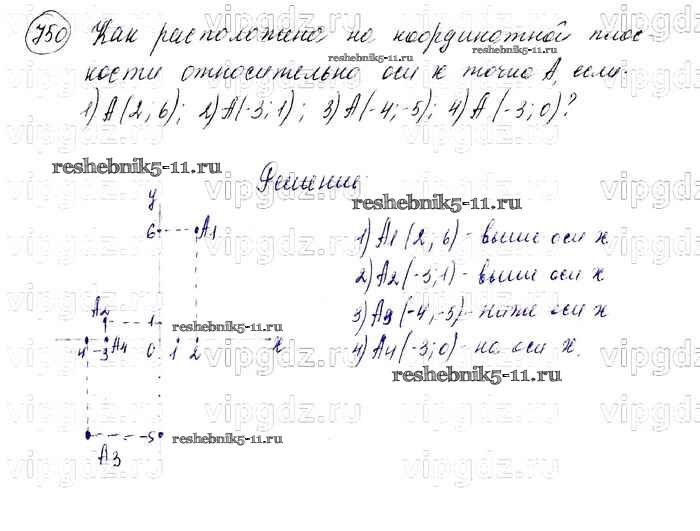 750 Как расположена на координатной плос-
кости относительно оси x точка A, если:
1) A(2; 6); 2) A(-3; 1); 3) A(-4; -5); 4) A(-3; 0)?
Решение:
1) A1 (2, 6) - выше оси x
2) A2 (-3; 1) - выше оси x
3) A3 (-4, -5) - ниже оси x
4) A4 (-3; 0) - на оси x.
y
6 A1
A2
1
4 -3 A4 0 1 2 x
-5
A3
reshebnik5-11.ru
reshebnik5-11.ru
reshebnik5-11.ru
reshebnik5-11.ru
reshebnik5-11.ru
reshebnik5-11.ru
vipgdz.ru